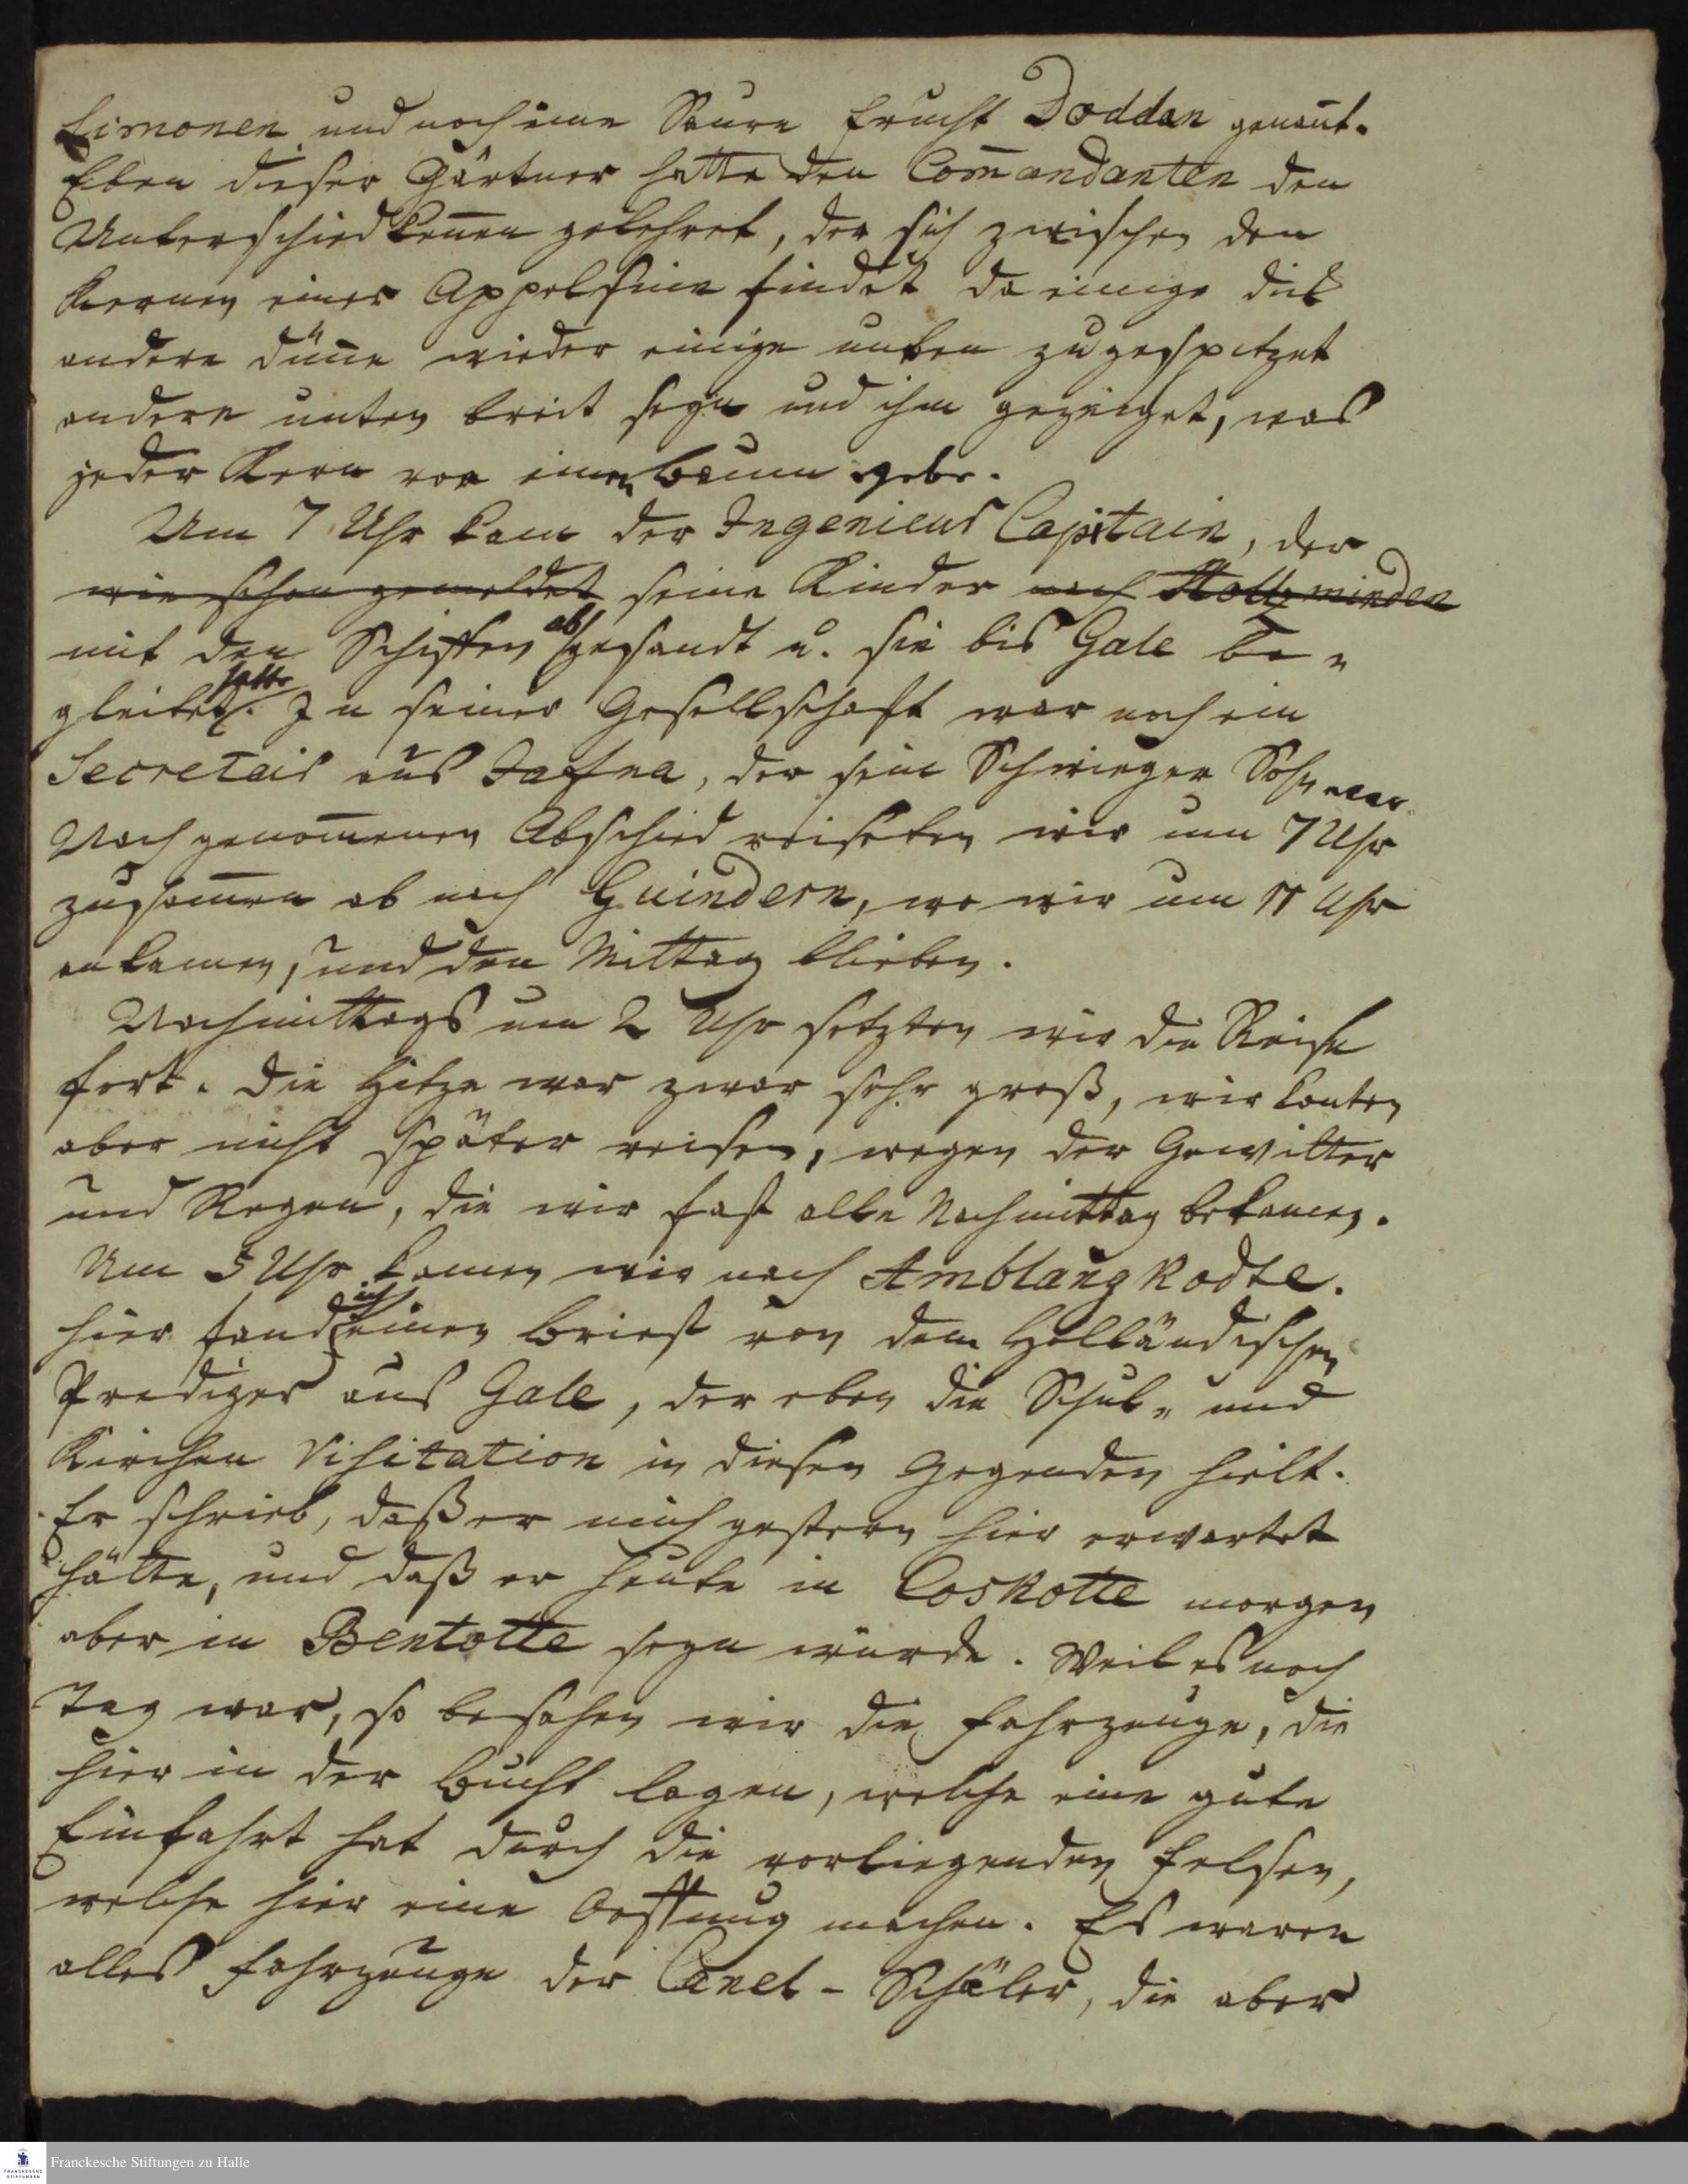 Limonen und noch eine Saure Frucht Doddan genañt.
Eben dieser Gärtner hatte den Com̄andanten den
Unterschied keñen gelehret, der sich zwischen den
Kernen einer Appelsine findet da einige dick
andere düñe wieder einige unten zugespitzet
andere unten breit seyn und ihm gezeiget, was
jeder Kern vor einen baum gebe.
Um 7 Uhr kam der Ingenieur Capitain, der
wie schon gemeldet seine Kinder nach Holtzminden
mit den Schiffen abgesandt u. sie bis Gale be-
gleitet hatte. In seiner Gesellschaft war noch ein
Secretair aus Jafna, der sein Schwieger Sohn war
Nach genom̄enen Abschied reiseten wir um 7 Uhr
zusam̄en ab nach Guindern, wo wir um 11 Uhr
ankamen, und den Mittag blieben.
Nachmittags um 2 Uhr setzten wir die Reise
fort. Die Hitze war zwar sehr groß, wir konten
aber nicht später reisen, wegen der Gewitter
und Regen, die wir fast alle Nachmittag bekamen.
Um 5 Uhr kamen wir nach Amblangkodte.
hier fand ich einen brief von dem Holländischen
Prediger aus Gale, der eben die Schul- und
Kirchen Visitation in diesen Gegenden hielt.
Er schrieb, daß er mich gestern hier erwartet
hätte, und daß er heute in Coskotte morgen
aber in Bentotte seyn würde. Weil es noch
Tag war, so besahen wir die Fahrzeuge, die
hier in der Bucht lagen, welche eine gute
Einfahrt hat durch die vorliegenden Felsen,
welche hier eine Oeffnung machen. Es waren
alles Fahrzeuge der Canel-Schäler, die aber
Franckesche Stiftungen zu Halle
FRANCKESCHE
STIFTUNGEN